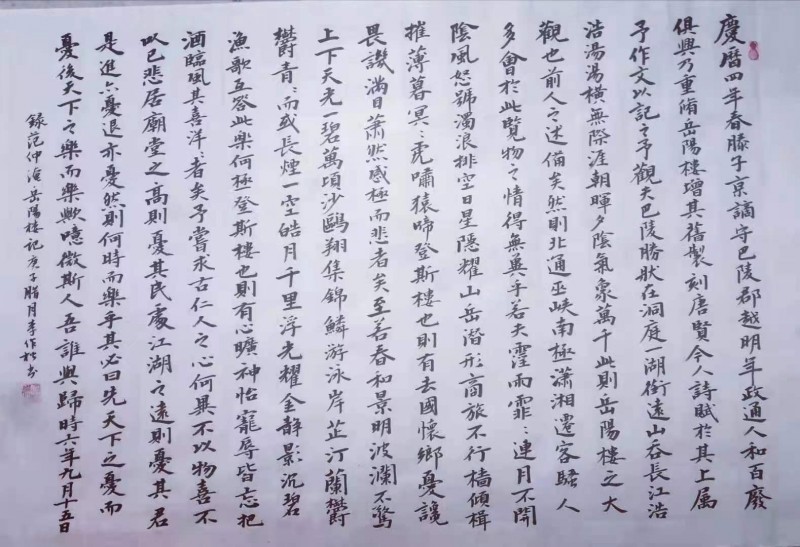 慶曆四年春滕子京謫守巴陵郡越明年政通人和百廢
俱興乃重脩岳陽樓增其舊製刻唐賢今人詩賦於其上属
予作文以記之予觀夫巴陵勝狀在洞庭一湖銜遠山吞長江浩
浩湯湯橫無際涯朝暉夕陰氣象萬千此則岳陽樓之大
觀也前人之述備矣然則北通巫峽南極瀟湘遷客騷人
多會於此覽物之情得無異乎若夫霪雨霏:連月不開
陰風怒號濁浪排空日星隱耀山岳潛形商旅不行檣傾楫
摧薄暮冥:虎嘯猿啼登斯樓也則有去國懷鄉憂讒
畏譏滿目蕭然感極而悲者矣至若春和景明波瀾不驚
上下天光一碧萬頃沙鷗翔集錦鱗游泳岸芷汀蘭鬱
鬱青:而或長煙一空皓月千里浮光耀金靜影沉碧
漁歌互答此樂何極登斯樓也則有心曠神怡寵辱皆忘把
酒臨風其喜洋:者矣予嘗求古仁人之心何異不以物喜不
以己悲居廟堂之高則憂其民處江湖之遠則憂其君
是進亦憂退亦憂然則何時而樂乎其必曰先天下之憂而
憂後天下之樂而樂歟噫微斯人吾誰與歸時六年九月十五日
錄范仲淹岳陽樓記庚子腊月李作書